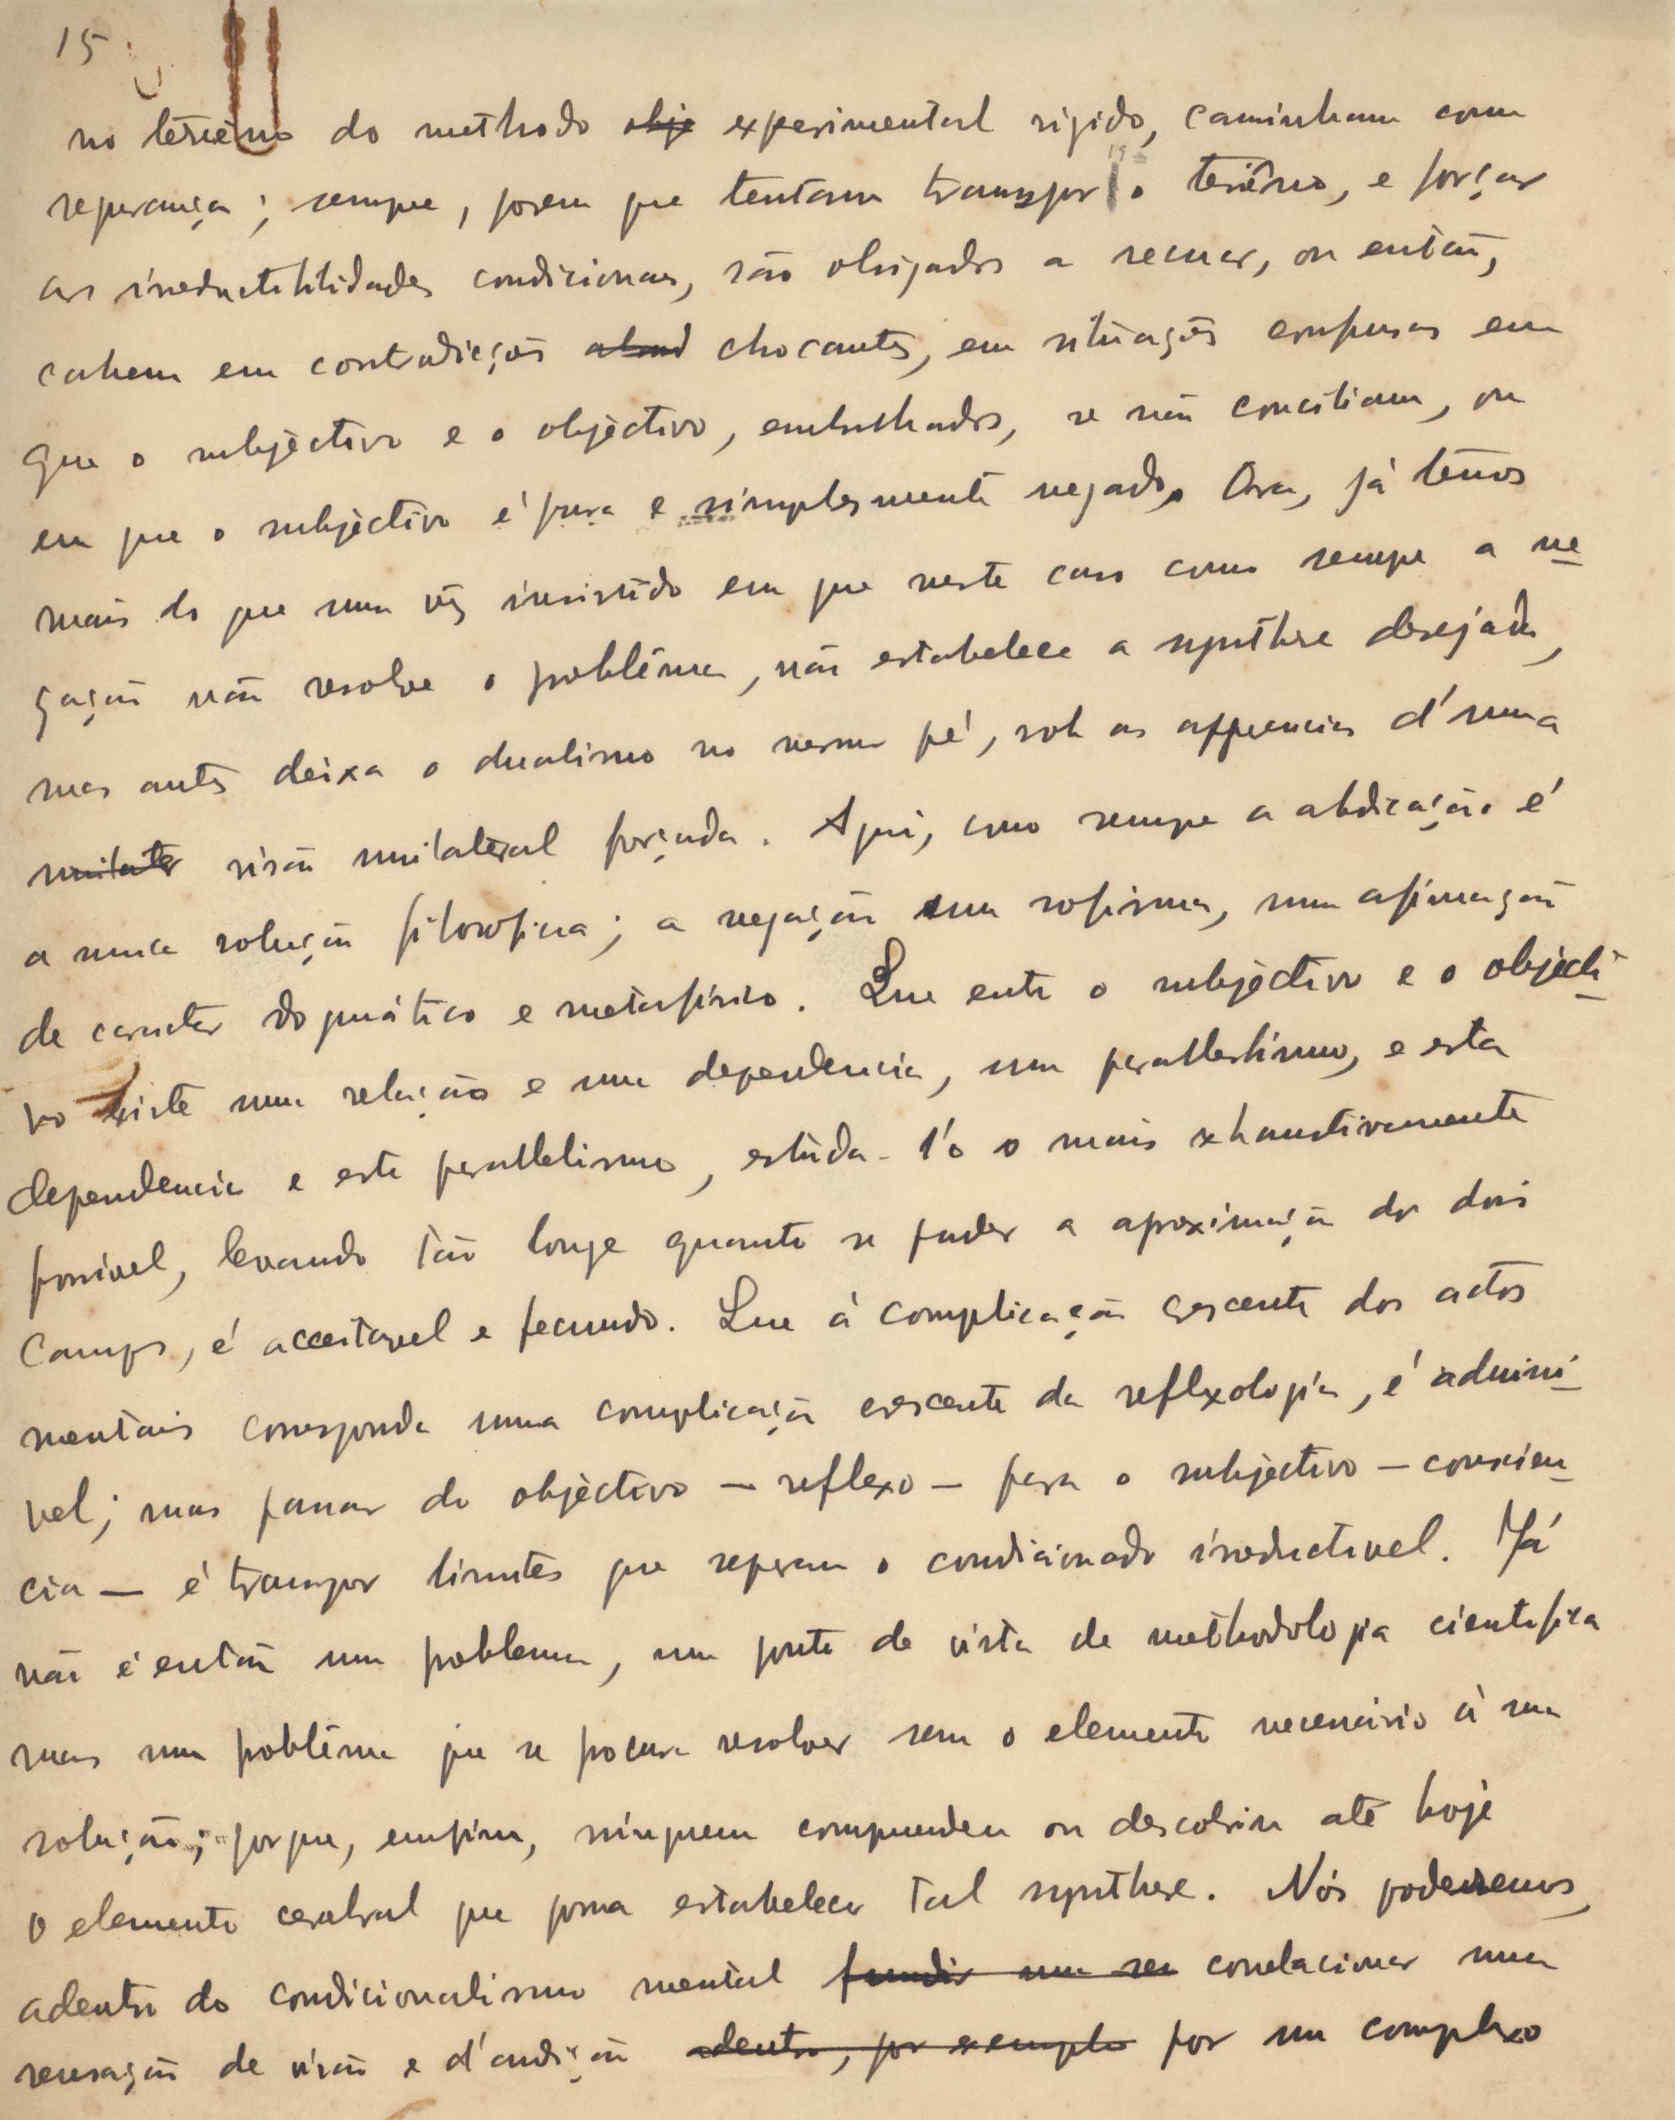 15
no terrêno do methodo obje experimental rigido, caminham com
segurança; sempre, porem que tentam transpor o terrêno, e forçar
as irreductibilidades condicionaes, são obrigados a recuar, ou então,
cahem em contradições chocantes, em situações confusas em
que o subjectivo e o objectivo, embrulhados, se não conciliam, ou
em que o subjectivo é pura e simplesmente negado. Ora, já temos
mais do que uma vês insistido em que neste caso como sempe a ne
gação não resolve o problêma, não estabelece a synthese desejada,
mas antes deixa o dualismo no mesmo pé, sob as apparencias d'uma
unilater visão unilateral forçada. Aqui, como sempre a abdicação é
a unica solução filosofica; a negação um sofisma, uma afirmação
de caracter dogmático e metafisico. Que entre o subjectivo e o objecti
vo existe uma relação e uma dependencia, um parallelismo, e esta
dependencia e este parallelismo, estuda-l'o o mais exhaustivamente
possivel, levando tão longe quanto se puder a aproximação dos dois
campos, é acceitavel e fecundo. Que á complicação crescente dos actos
mentais corresponda uma complicação crescente da reflexologia, é admissi
vel; mas passar do objectivo — reflexo — para o subjectivo — conscien
cia — é transpor limites que separam o condicionado irreductivel. Já
não é então um problema, um ponto de vista de methodologia cientifica
mas um problêma que se procura resolver sem o elemento necessário á sua
solução; porque, emfim, ninguem comprendeu ou descobriu até hoje
o elemento cerebral que possa estabelecer tal synthese. Nós poderemos,
adentro do condicionalismo mental fundir num seu correlacionar uma
sensação de visão e d'audição adentro, por exemplo por um complexo